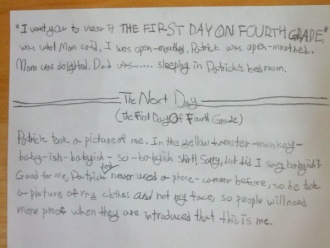 "I want you to wear it THE FIRST DAY ON FOURTH GRADE,"
was what Mom said. I was open-mouthed. Patrick was open-mouthed.
Mom was delighted. Dad was...... sleeping in Patrick's bedroom.
The Next Day
(The First Day Of Fourth Grade)
Patrick took a picture of me. In the yellow-monster-monkey-
baby-ish-babyish-so-babyish shirt. Sorry, but did I say babyish?
Good for me, Patrick has never used a phone-camera before, so he took
a picture of my clothes and not my face, so people will need
more proof when they are introduced that this is me.